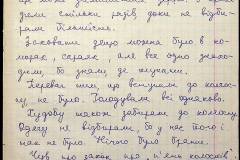 дили стільки разів доки не відби-
рали більшість.
Заховати дещо можна було в ко-
морах, сараях, але все одно знахо-
дили, бо знали, де шукати.
Переваг тим, що вступали до колгос-
пу, не було. Голодували всі однаково.
Худобу також забирали до колгоспу.
Одягу не відбирали, бо у нас того і
так не було. Нічого було брати.
Чув про закон про "п'ять колосків"